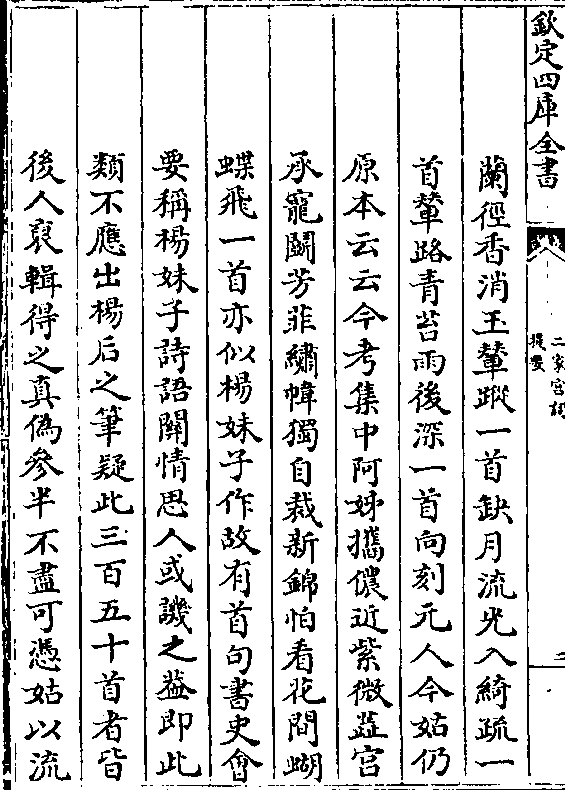 欽定四庫全書
二家宮詞
提要
二
蘭徑香消玉輦蹤一首缺月流光入綺疏一
首輦路青苔雨後深一首向刻元人今姑仍
原本云云今考集中阿姊攜儂近紫微蕋宮
承寵鬬芳菲繡幃獨自裁新錦怕看花間蝴
蝶飛一首亦似楊妹子作故有首句書史會
要稱楊妹子詩語關情思人或譏之葢即此
類不應出楊后之筆疑此三百五十首者皆
後人裒輯得之真偽參半不盡可憑姑以流